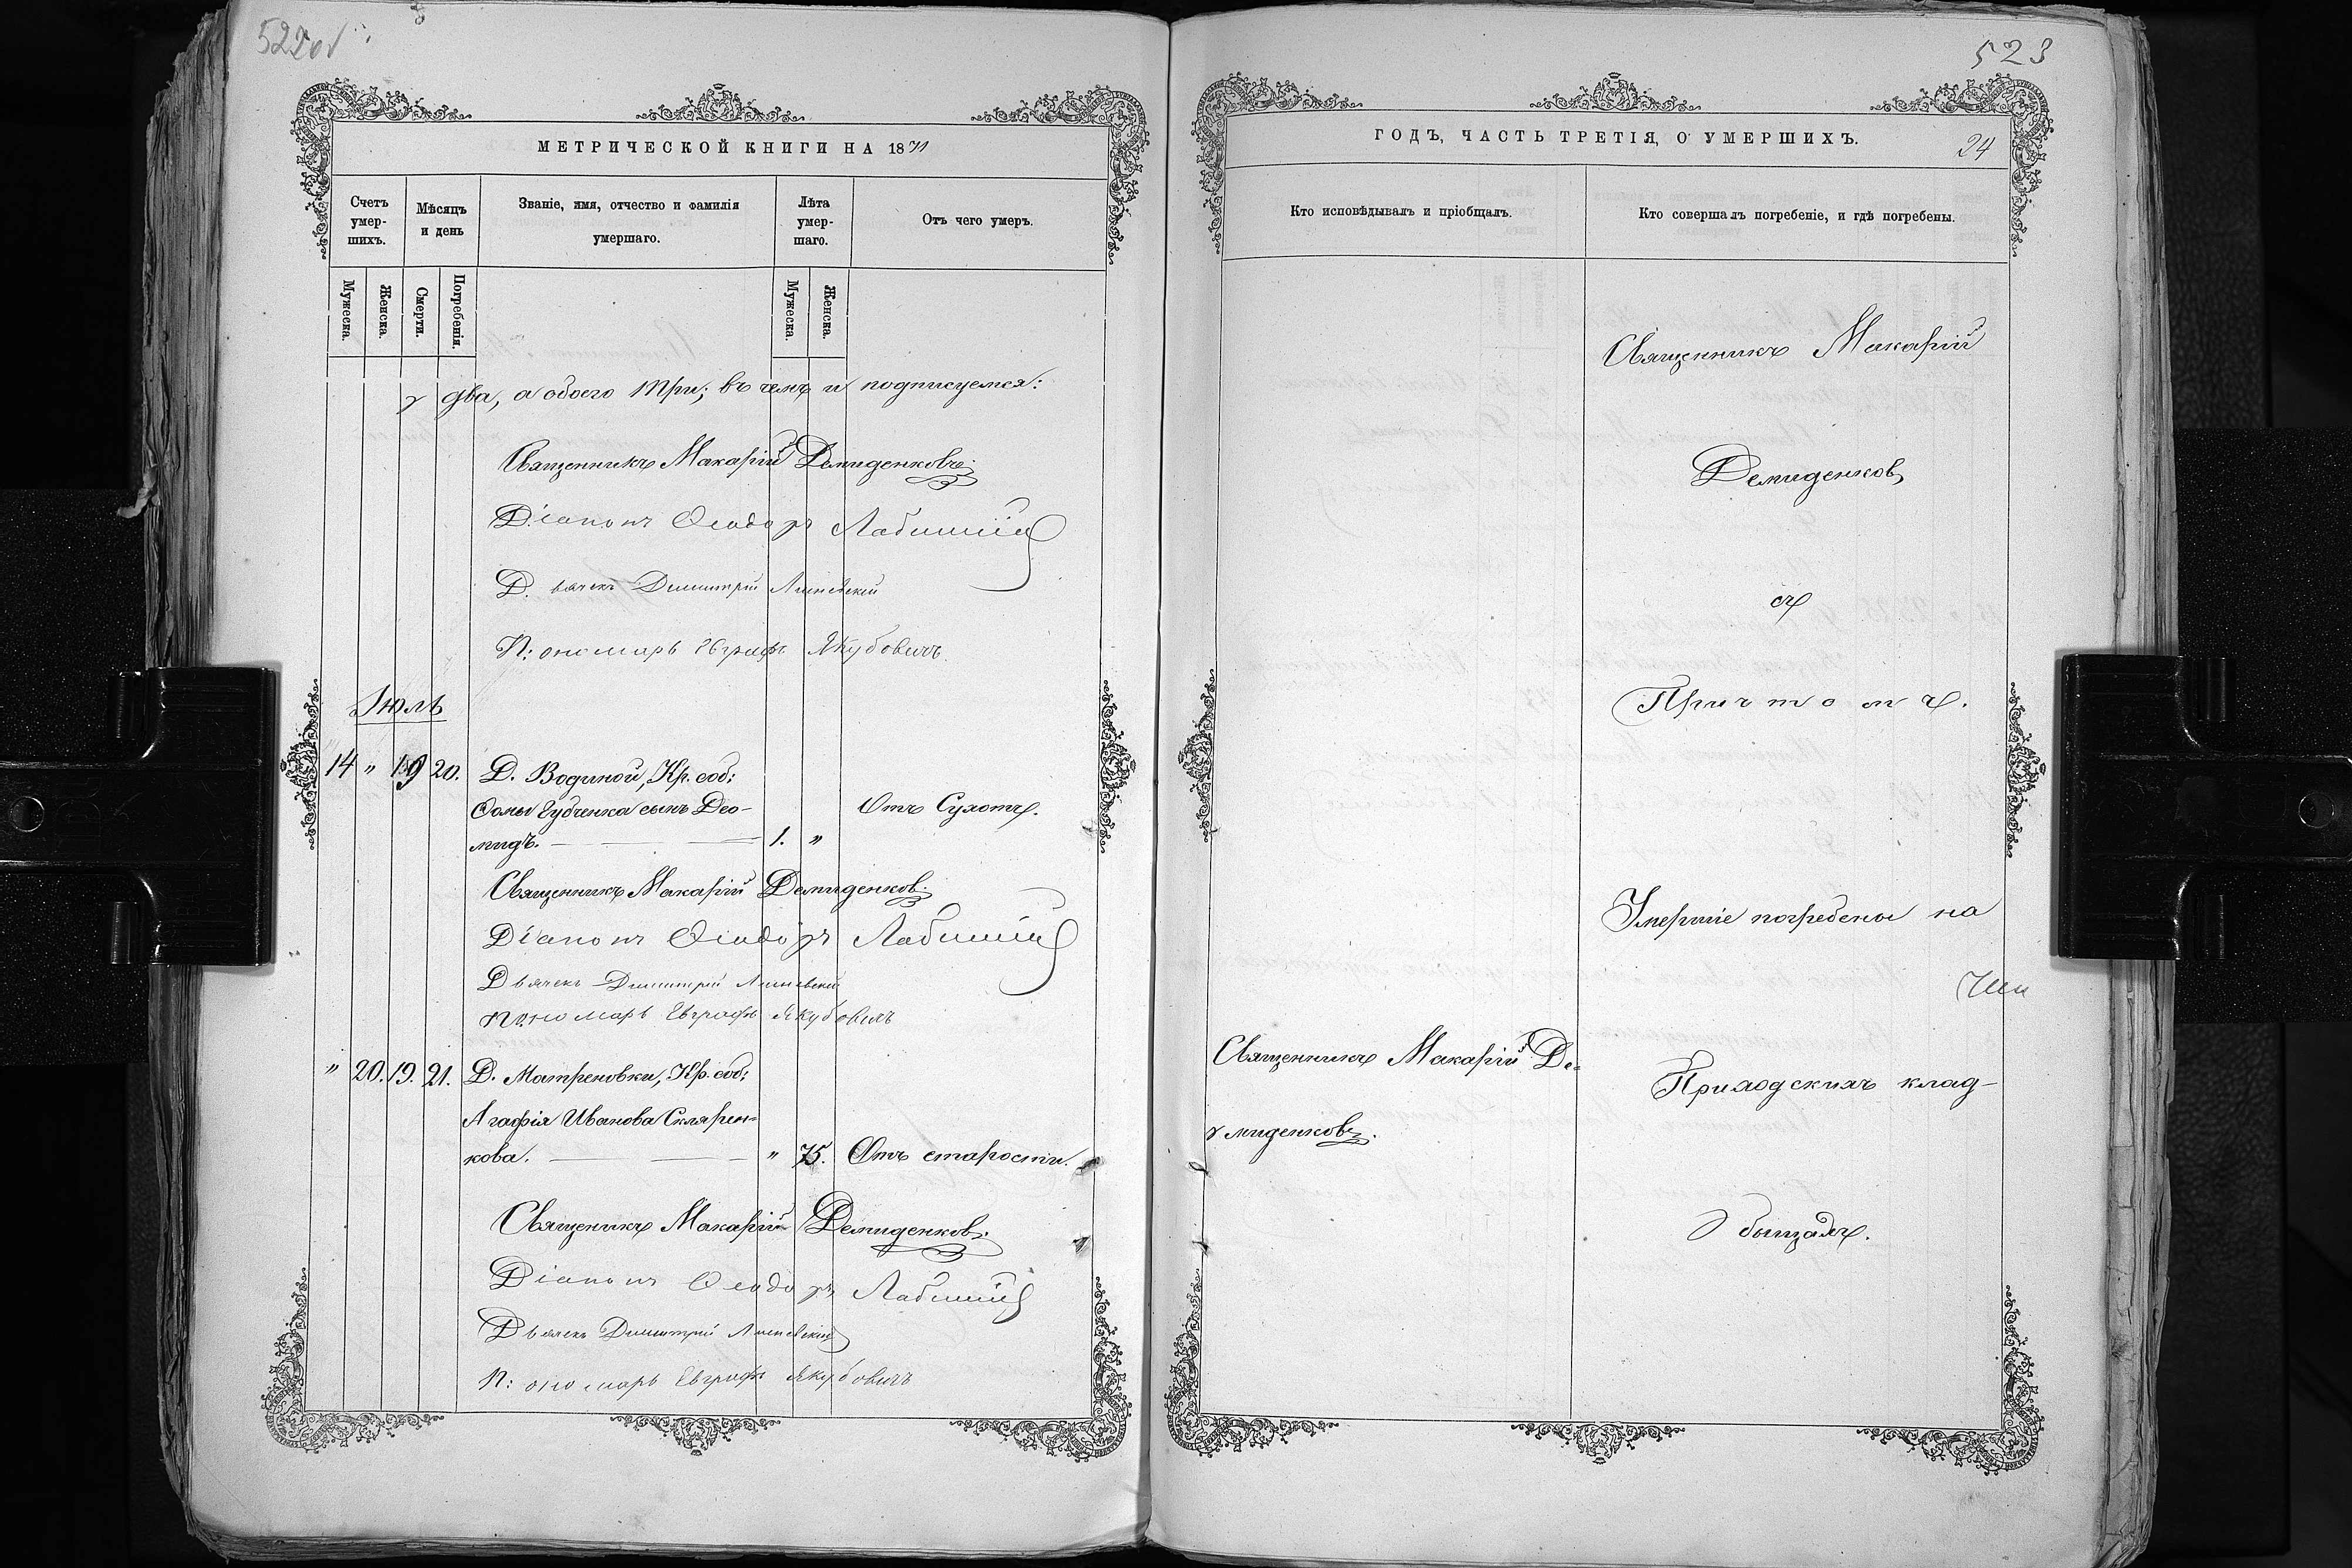 522об
МЕТРИЧЕСКОЙ КНИГИ НА 1871
Счетъ умер-шихъ.
Мѣсяцъ и день
Званіе, имя, отчество и фамилія умершаго.
Лѣта умер-шаго.
Отъ чего умеръ.
Мужеска.
Женска.
Смерти.
Погребенія.
Мужеска.
Женска.
два, а обоего три; въ чемъ и подписуемся:
Священникъ Макарій Демиденковъ.
Діаконъ Ѳеодоръ
Дьячекъ Димитрій
П: ономарь Евграфъ Якубовичъ.
Іюль
14 " 19 20. Д. Водиной, Кр. соб:
Ѳомы Губченка сынъ Део-
мидъ. 1. " Отъ Сухотъ.
Священникъ Макарій Демиденковъ.
Діаконъ Ѳеодоръ
Дьячекъ Димитрій
Пономарь Евграфъ Якубовичъ
" 20. 19. 21. Д. Матреновки, Кр. соб:
Агафія Иванова Склярен-
кова. " 75. Отъ старости.
Священикъ Макарій Демиденковъ.
Діаконъ Ѳеодоръ
Дьячекъ Димитрій
П: ономарь Евграфъ Якубовичъ
523
ГОДЪ, ЧАСТЬ ТРЕТІЯ, О УМЕРШИХЪ.
24
Кто исповѣдывалъ и пріобщалъ.
Кто совершалъ погребеніе, и гдѣ погребены.
Священникъ Макарій
Демиденковъ
съ
Причтомъ.
Умершіе погребены на
Священникъ Макарій Де=
миденковъ.
Приходскихъ клад-
бищахъ.